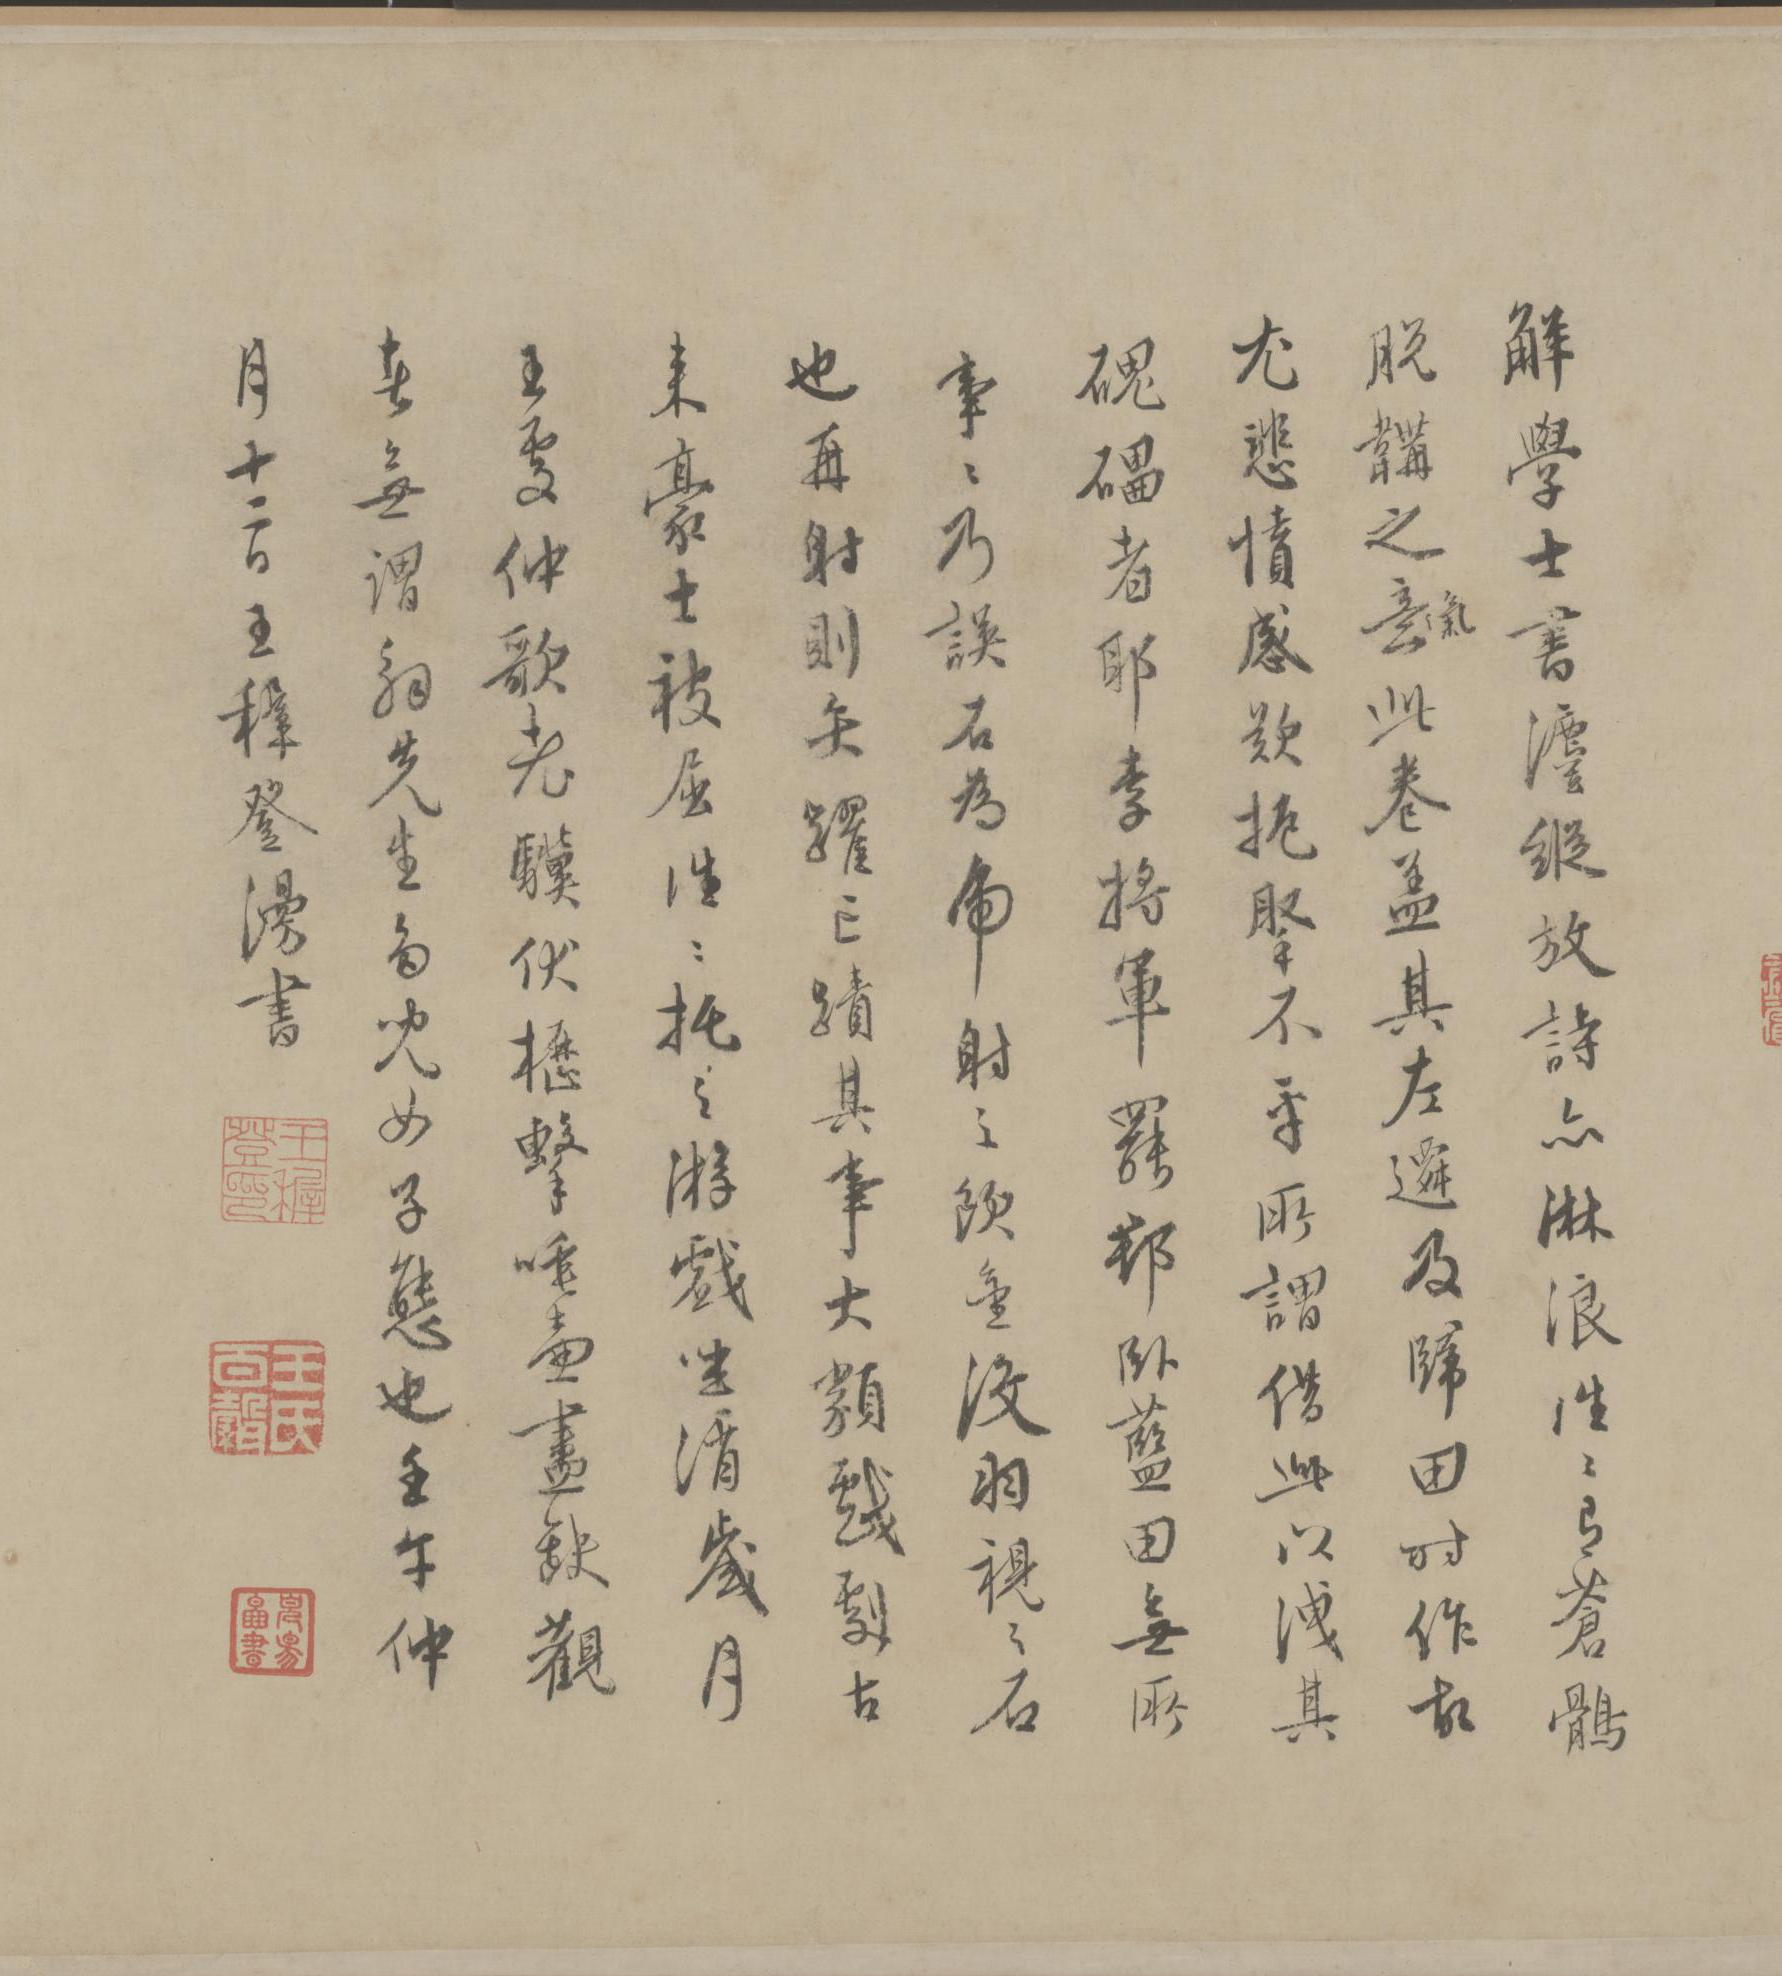 解學士書濃縱放詩亦淋浪往〻有蒼鶻
脫韝之意氣此卷蓋其左遷及歸田時作故
尤悲憤感歎扼掔不平所謂借此以洩其
磈礧者耶李將軍罷郡臥藍田無所
事〻乃誤石為虎射之飲金沒羽視之石
也再射則矢躍已蹟其事大類戲劇古
來豪士被屈往〻托之游戲坐消歲月
王處仲歌老驥伏櫪擊唾壺盡缺觀
者無謂翁先生為兒女子態也壬午仲
月十二日王穉登漫書
王穉登印
王氏百穀